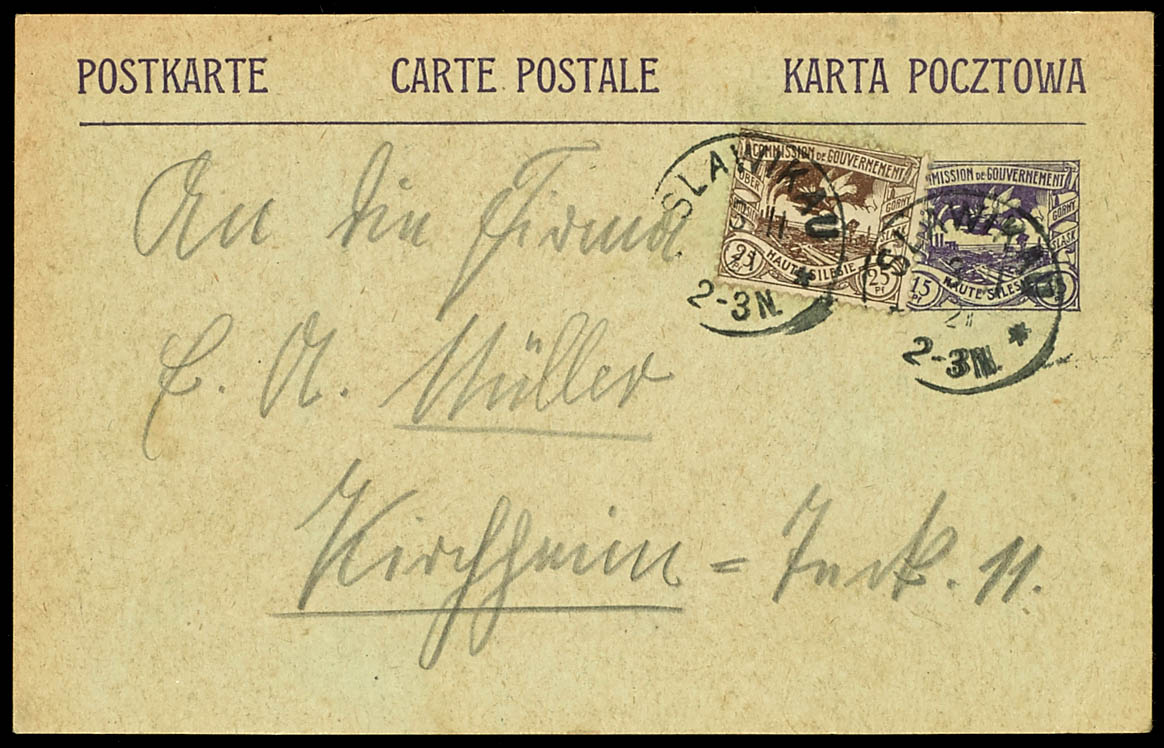 POSTKARTE CARTE POSTALE KARTA POCZTOWA
COMMISSION DE GOUVERNEMENT
OBER GORNY
SLASK
25 Pf HAUTE SILESIE 25 Pf
MMISSION DE GOUVERNEMENT
GORNY
SLASK
15 Pf HAUTE SILESIE
SLAWIKAU
2-3N. *
21
2-3N. *
An die Firma
E. A. Müller
Kirchheim = Teck. 11.